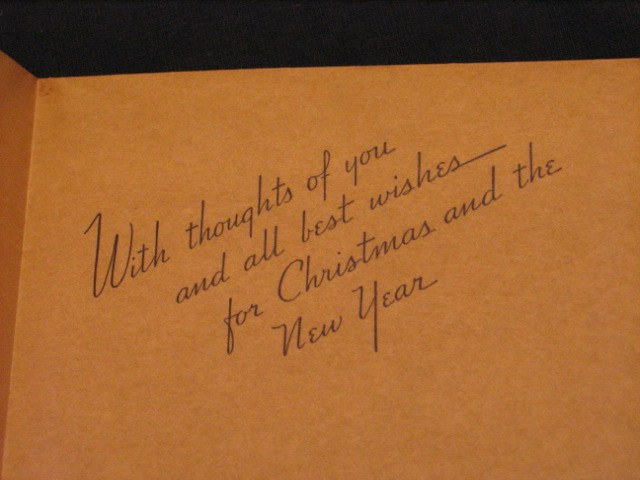 With thoughts of you
and all best wishes—
for Christmas and the
New Year